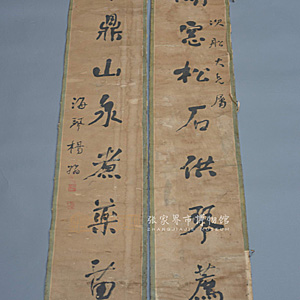 次船大兄屬
窻松石供琴薦
鼎山泉煮藥苗
海琴楊翰
张家界市博物馆
ZHANGJIAJIE MUSEUM